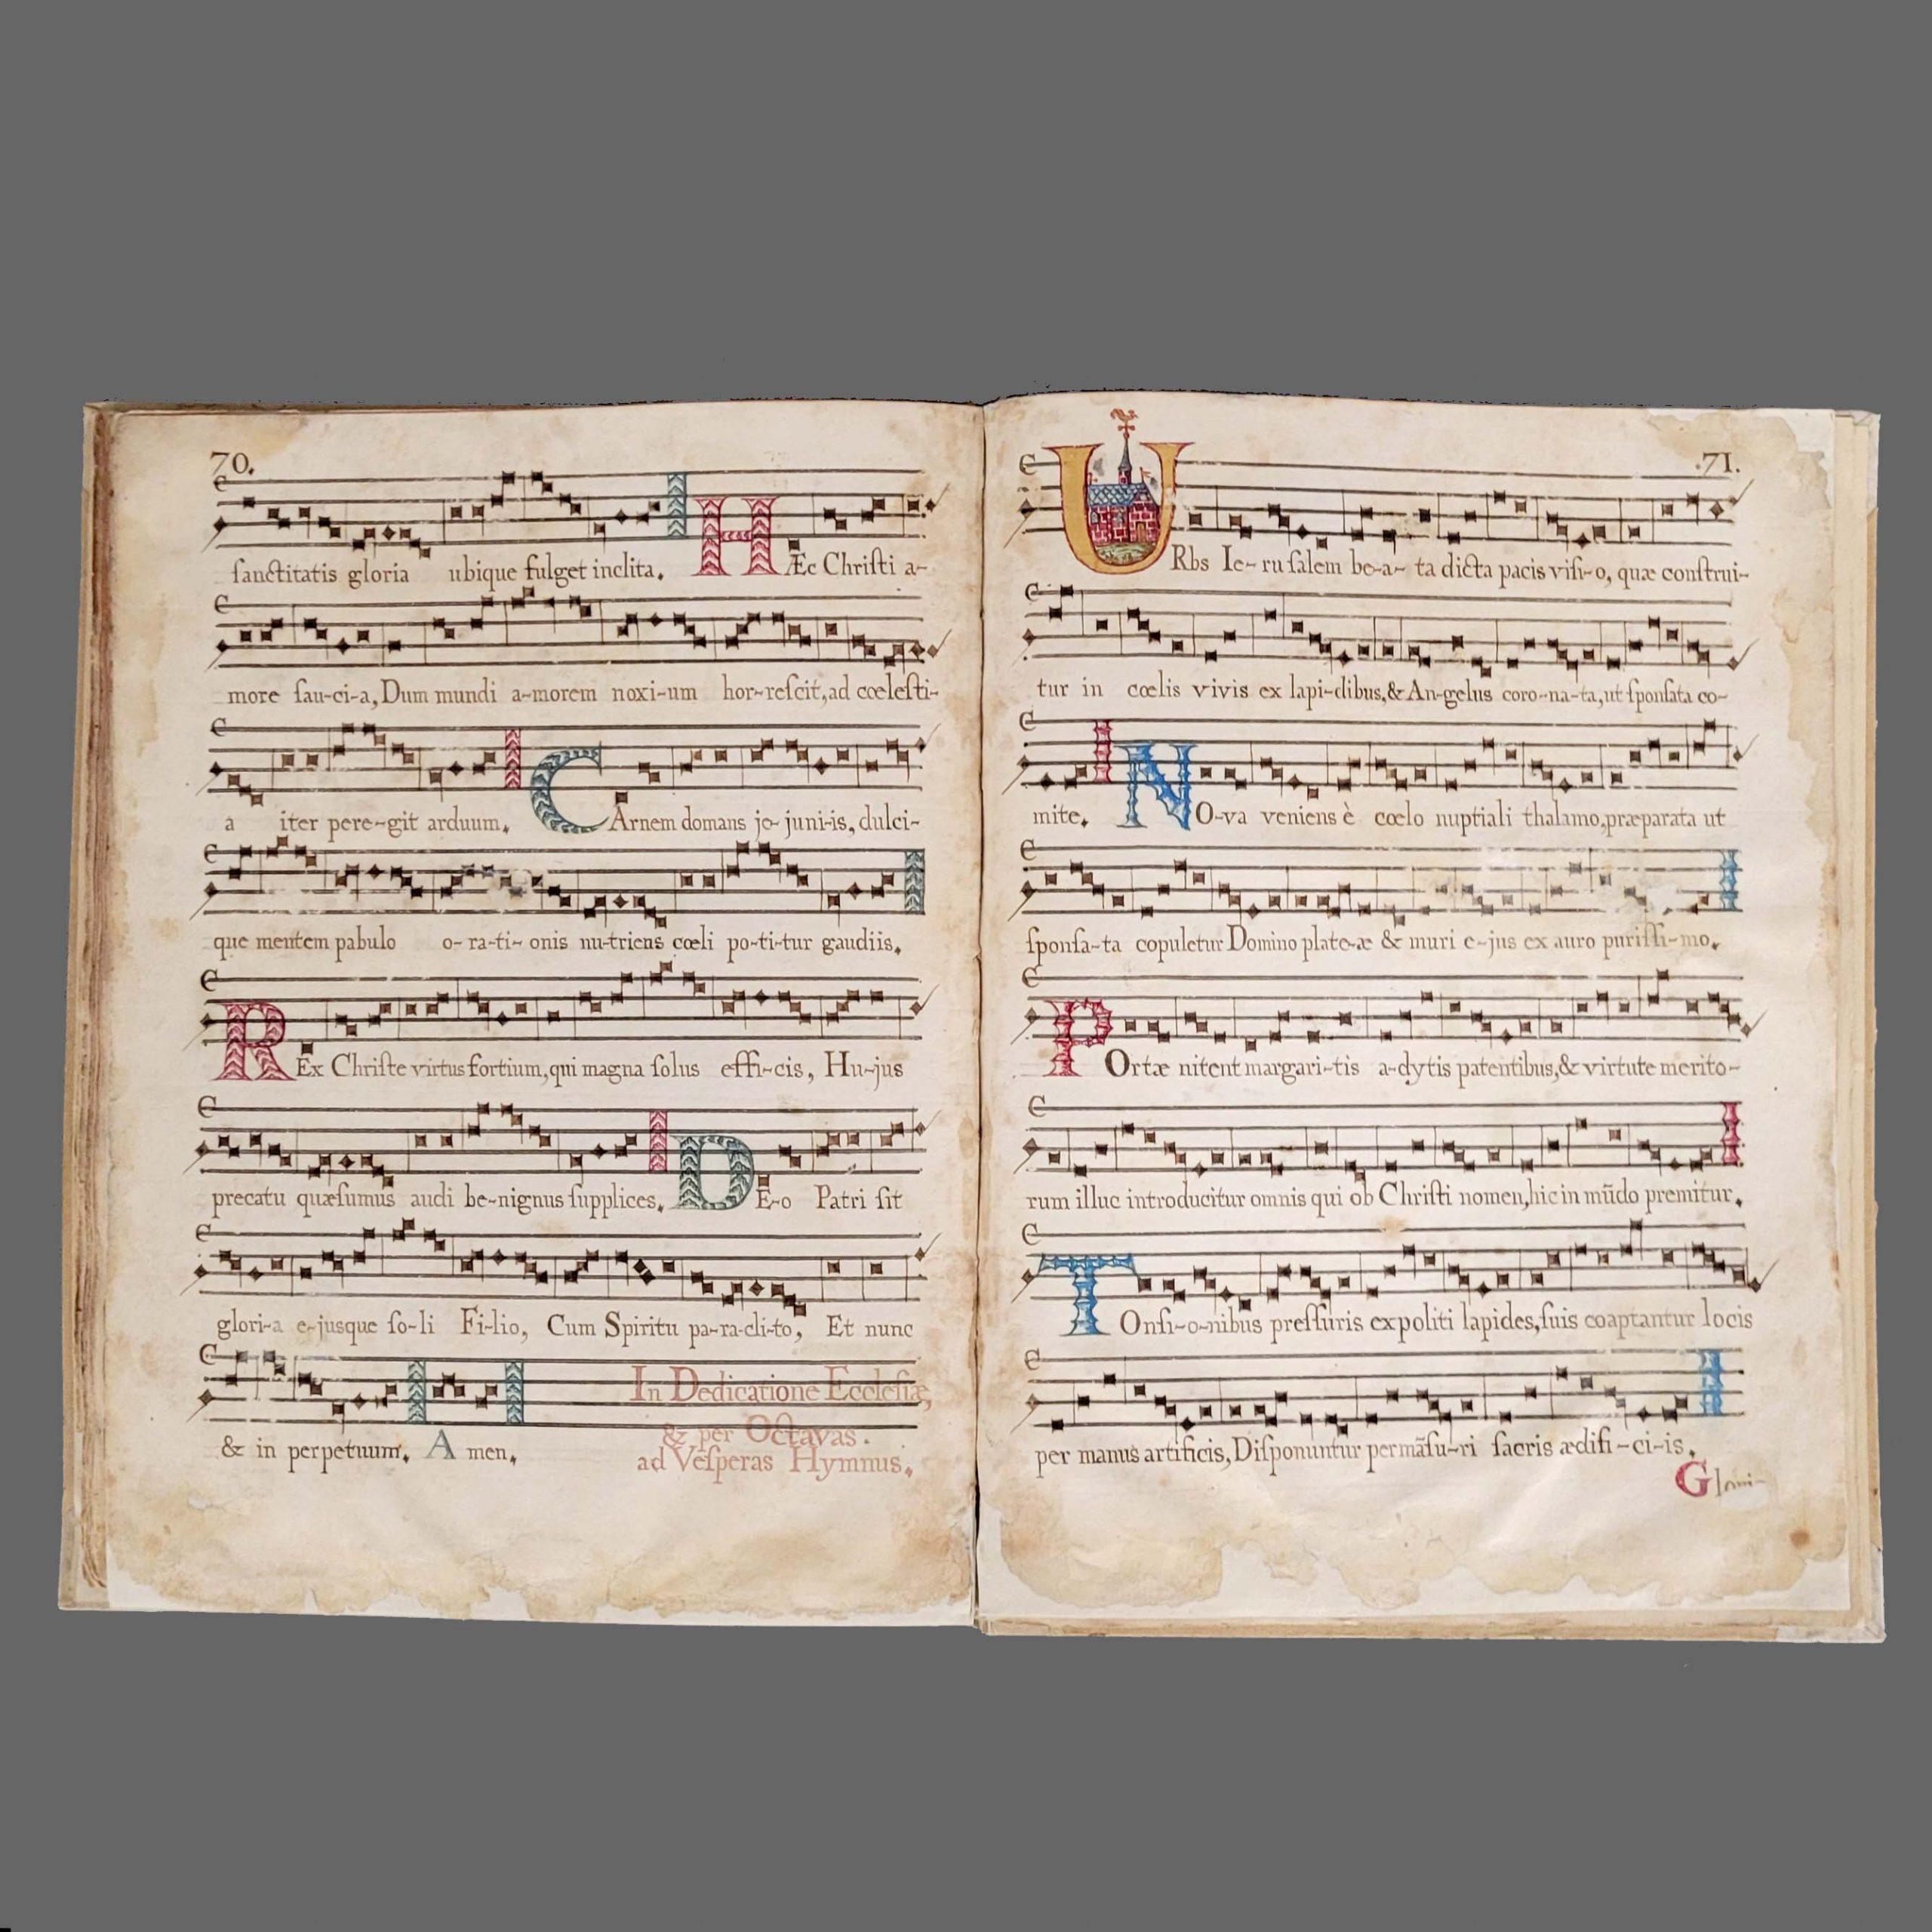 70.
ſanctitatis gloria ubique fulget inclita. HÆc Chriſti a-
more ſau-ci-a, Dum mundi a-morem noxi-um hor-reſcit, ad cœleſti-
a iter pere-git arduum. CArnem domans je-juni-is, dulci-
que mentem pabulo o-ra-ti-onis nu-triens cœli po-ti-tur gaudiis.
REx Chriſte virtus fortium, qui magna ſolus effi-cis, Hu-jus
precatu quæſumus audi be-nignus ſupplices. DE-o Patri ſit
glori-a e-jusque ſo-li Fi-lio, Cum Spiritu pa-ra-cli-to, Et nunc
& in perpetuum. A men. In Dedicatione Eccleſiæ,
& per Octavas.
ad Veſperas Hymnus.
.71.
URbs Ie-ru ſalem be-a-ta dicta pacis viſi-o, quæ conſtrui-
tur in cœlis vivis ex lapi-dibus, & An-gelus coro-na-ta, ut ſponſata co-
mite. NO-va veniens è cœlo nuptiali thalamo, præparata ut
ſponſa-ta copuletur Domino plate-æ & muri e-jus ex auro puriſſi-mo.
POrtæ nitent margari-tis a-dytis patentibus, & virtute merito-
rum illuc introducitur omnis qui ob Chriſti nomen, hic in mũdo premitur.
TOnſi-o-nibus preſſuris expoliti lapides, ſuis coaptantur locis
per manus artificis, Diſponuntur permãſu-ri ſacris ædifi-ci-is.
Glori-